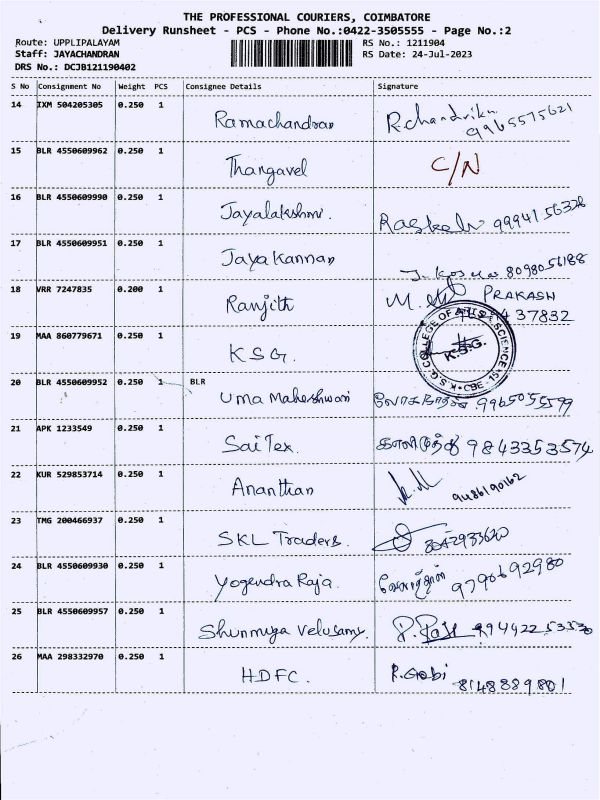 THE PROFESSIONAL COURIERS, COIMBATORE
Delivery Runsheet - PCS - Phone No.:0422-3505555 - Page No.:2
Route: UPPLIPALAYAM RS No.: 1211904
Staff: JAYACHANDRAN RS Date: 24-Jul-2023
DRS No.: DCJB121190402
S No Consignment No Weight PCS Consignee Details Signature
14 IXM 504205305 0.250 1 Ramachandran R.chandrika 9965575621
15 BLR 4550609962 0.250 1 Thangavel C/N
16 BLR 4550609990 0.250 1 Jayalakshmi. 9994156328
17 BLR 4550609951 0.250 1 Jaya Kannan 8098056188
18 VRR 7247835 0.200 1 Ranjith PRAKASH
437832
19 MAA 860779671 0.250 1 KSG. K.S.G. COLLEGE OF ARTS & SCIENCE K.S.G.
20 BLR 4550609952 0.250 1 BLR Uma Maheshwari 9965055599
21 APK 1233549 0.250 1 Sai Tex. 9843353574
22 KUR 529853714 0.250 1 Ananthan 9486190162
23 TMG 200466937 0.250 1 SKL Traders.
24 BLR 4550609930 0.250 1 Yogendra Raja. 9790692980
25 BLR 4550609957 0.250 1 Shunmuga Velusamy.
26 MAA 298332970 0.250 1 HDFC. R.Gobi 8148889801